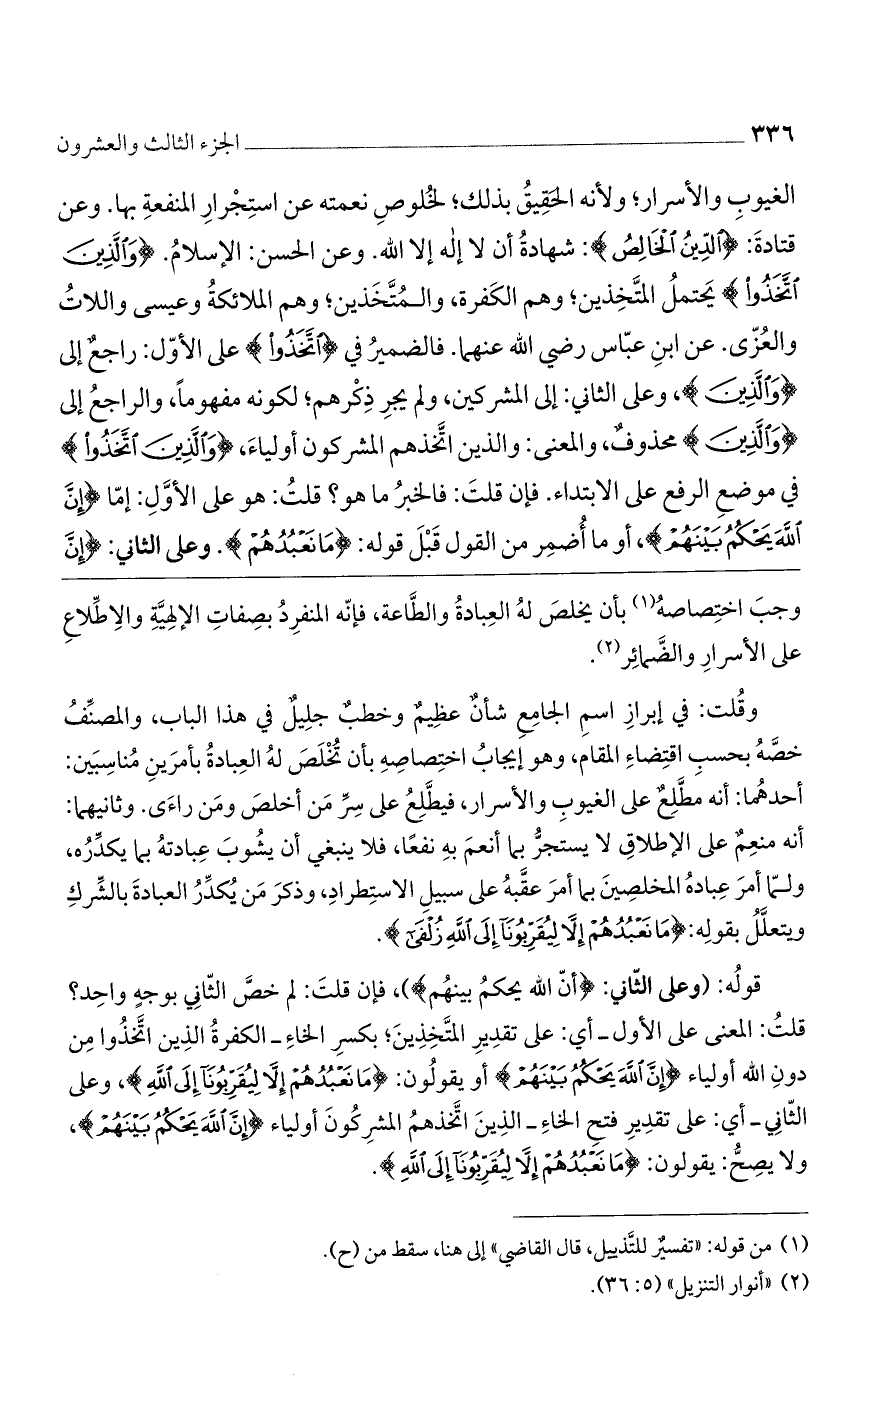 ٣٣٦ الجزء الثالث والعشرون
الغيوبِ والأسرار؛ ولأنه الحَقِيقُ بذلك؛ لخُلوصِ نعمته عن استِجْرارِ المنفعةِ بها. وعن
قتادةَ: ﴿ٱلدِّينُ ٱلْخَالِصُ﴾: شهادةُ أن لا إلٰه إلا الله. وعن الحسن: الإسلامُ. ﴿وَٱلَّذِينَ
ٱتَّخَذُواْ﴾ يَحتملُ المتَّخِذين؛ وهم الكَفرة، والـمُتَّخَذين؛ وهم الملائكةُ وعيسى واللاتُ
والعُزّى. عن ابنِ عبّاس رضي الله عنهما. فالضميرُ في ﴿ٱتَّخَذُواْ﴾ على الأوّل: راجعٌ إلى
﴿وَٱلَّذِينَ﴾، وعلى الثاني: إلى المشركين، ولم يجرِ ذِكْرهم؛ لكونه مفهوماً، والراجعُ إلى
﴿وَٱلَّذِينَ﴾ محذوفٌ، والمعنى: والذين اتَّخذهم المشركون أولياءَ، ﴿وَٱلَّذِينَ ٱتَّخَذُواْ﴾
في موضعِ الرفع على الابتداء. فإن قلتَ: فالخبرُ ما هو؟ قلتُ: هو على الأوَّلِ: إمّا ﴿إِنَّ
ٱللَّهَ يَحْكُمُ بَيْنَهُمْ﴾، أو ما أُضمِر من القول قَبْلَ قوله: ﴿مَا نَعْبُدُهُمْ﴾. وعلى الثاني: ﴿إِنَّ
وجبَ اختِصاصهُ(١) بأن يخلصَ لهُ العِبادةُ والطَّاعة، فإنّه المنفرِدُ بصِفاتِ الإلهيَّةِ والاِطِّلاعِ
على الأسرارِ والضَّمائِر(٢).
وقُلت: في إبرازِ اسمِ الجامعِ شأنٌ عظِيمٌ وخطبٌ جلِيلٌ في هذا الباب، والمصنِّفُ
خصَّهُ بحسبِ اقتِضاءِ المقام، وهو إيجابُ اختِصاصِهِ بأن تُخْلَصَ لهُ العِبادةُ بأمرَينِ مُناسِبَين:
أحدهُما: أنه مطَّلِعٌ على الغيوبِ والأسرار، فيطَّلِعُ على سِرِّ مَن أخلصَ ومَن راءَى. وثانيهما:
أنه منعِمٌ على الإطلاقِ لا يستجرُّ بما أنعمَ بهِ نفعًا، فلا ينبغي أن يشُوبَ عِبادتهُ بما يكدِّرُه،
ولـمّا أمرَ عِبادهُ المخلصِينَ بما أمرَ عقَّبهُ على سبيلِ الاستِطرادِ، وذكرَ مَن يُكدِّرُ العبادةَ بالشِّركِ
ويتعلَّلُ بقولِه: ﴿مَا نَعْبُدُهُمْ إِلَّا لِيُقَرِّبُونَآ إِلَى ٱللَّهِ زُلْفَىٰٓ﴾.
قولُه: (وعلى الثّاني: ﴿أنّ الله يحكمُ بينهُم﴾)، فإن قلتَ: لم خصَّ الثّانِي بوجهٍ واحِد؟
قلتُ: المعنى على الأول ـ أي: على تقديرِ المتَّخِذِينَ؛ بكسرِ الخاءِ ـ الكفرةُ الذِين اتَّخذُوا مِن
دونِ الله أولياء ﴿إِنَّ ٱللَّهَ يَحْكُمُ بَيْنَهُمْ﴾ أو يقولُون: ﴿مَا نَعْبُدُهُمْ إِلَّا لِيُقَرِّبُونَآ إِلَى ٱللَّهِ﴾، وعلى
الثّانِي ـ أي: على تقدِيرِ فتحِ الخاءِ ـ الذِينَ اتَّخذهمُ المشرِكُونَ أولياء ﴿إِنَّ ٱللَّهَ يَحْكُمُ بَيْنَهُمْ﴾،
ولا يصِحُّ: يقولون: ﴿مَا نَعْبُدُهُمْ إِلَّا لِيُقَرِّبُونَآ إِلَى ٱللَّهِ﴾.
(١) من قوله: «تفسيرٌ للتَّذييل، قال القاضي» إلى هنا، سقط من (ح).
(٢) «أنوار التنزيل» (٥: ٣٦).